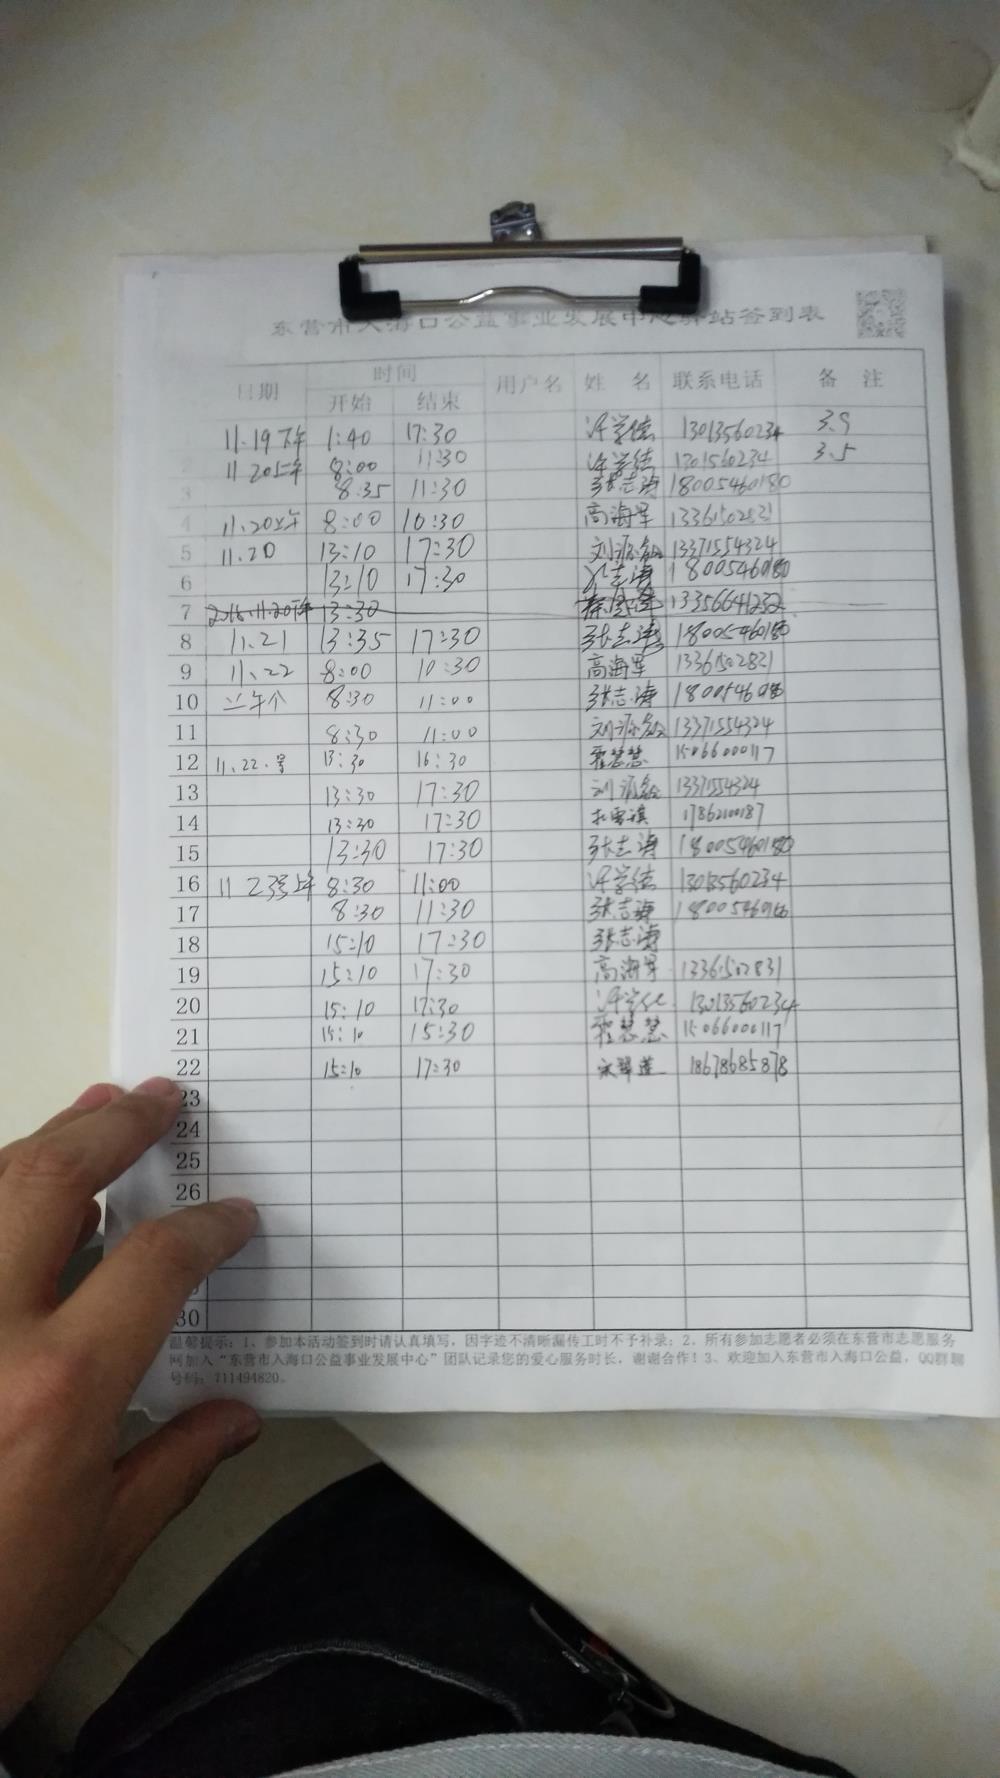 东营市入海口公益事业发展中心驿站签到表
日期 时间 用户名 姓 名 联系电话 备 注
开始 结束
11.19下午 1:40 17:30 许学德 13013560234 3.9
11.20上午 8:00 11:30 许学德 1301560234 3.5
3 8:35 11:30 张志涛 18005460180
4 11.20上午 8:00 10:30 高海军 13361502831
5 11.20 13:10 17:30 刘 13371554324
6 13:10 17:30 张志涛 18005460180
7 2016.11.20下午 13:30 13356641232
8 11.21 13:35 17:30 张志涛 18005460180
9 11.22 8:00 10:30 高海军 13361502831
10 上午 8:30 11:00 张志涛
11 8:30 11:00 刘 13371554324
12 11.22.号 13:30 16:30 霍慧慧 15066000117
13 13:30 17:30 刘 13371554324
14 13:30 17:30 17862100187
15 13:30 17:30 张志涛 18005460180
16 11 23号上午 8:30 11:00 许学德 13013560234
17 8:30 11:30 张志涛
18 15:10 17:30 张志涛
19 15:10 17:30 高海军 13361502831
20 15:10 17:30 许学 13013560234
21 15:10 15:30 霍慧慧 15066000117
22 15:10 17:30 宋翠莲 18678685878
23
24
25
26
30
温馨提示：1、参加本活动签到时请认真填写，因字迹不清晰漏传工时不予补录；2、所有参加志愿者必须在东营市志愿服务
网加入“东营市入海口公益事业发展中心”团队记录您的爱心服务时长，谢谢合作！3、欢迎加入东营市入海口公益，QQ群聊
号码：711494820。